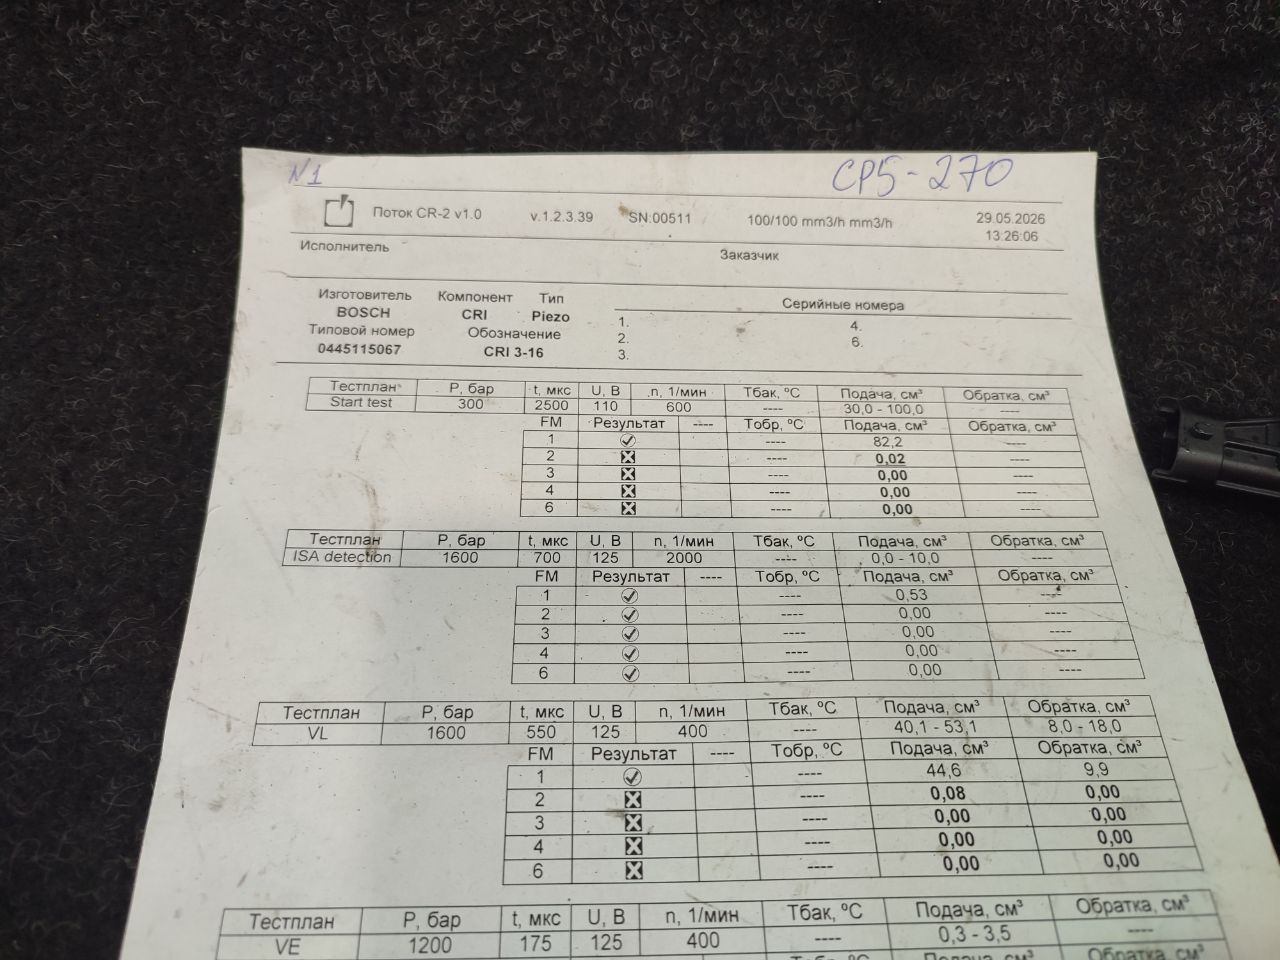 N1
СР5-270
Поток CR-2 v1.0 v.1.2.3.39 SN:00511 100/100 mm3/h mm3/h 29.05.2026
13:26:06
Исполнитель Заказчик
Изготовитель Компонент Тип Серийные номера
BOSCH CRI Piezo 1. 4.
Типовой номер Обозначение 2. 6.
0445115067 CRI 3-16 3.
Тестплан Р, бар t, мкс U, В n, 1/мин Тбак, ºС Подача, см³ Обратка, см³
Start test 300 2500 110 600 ---- 30,0 - 100,0 ----
FM Результат ---- Тобр, ºС Подача, см³ Обратка, см³
1 ---- 82,2 ----
2 ---- 0,02 ----
3 ---- 0,00 ----
4 ---- 0,00 ----
6 ---- 0,00 ----
Тестплан Р, бар t, мкс U, В n, 1/мин Тбак, ºС Подача, см³ Обратка, см³
ISA detection 1600 700 125 2000 ---- 0,0 - 10,0 ----
FM Результат ---- Тобр, ºС Подача, см³ Обратка, см³
1 ---- 0,53 ----
2 ---- 0,00 ----
3 ---- 0,00 ----
4 ---- 0,00 ----
6 ---- 0,00 ----
Тестплан Р, бар t, мкс U, В n, 1/мин Тбак, ºС Подача, см³ Обратка, см³
VL 1600 550 125 400 ---- 40,1 - 53,1 8,0 - 18,0
FM Результат ---- Тобр, ºС Подача, см³ Обратка, см³
1 ---- 44,6 9,9
2 ---- 0,08 0,00
3 ---- 0,00 0,00
4 ---- 0,00 0,00
6 ---- 0,00 0,00
Тестплан Р, бар t, мкс U, В n, 1/мин Тбак, ºС Подача, см³ Обратка, см³
VE 1200 175 125 400 ---- 0,3 - 3,5 ----
Тобр, ºС Подача, см³ Обратка, см³